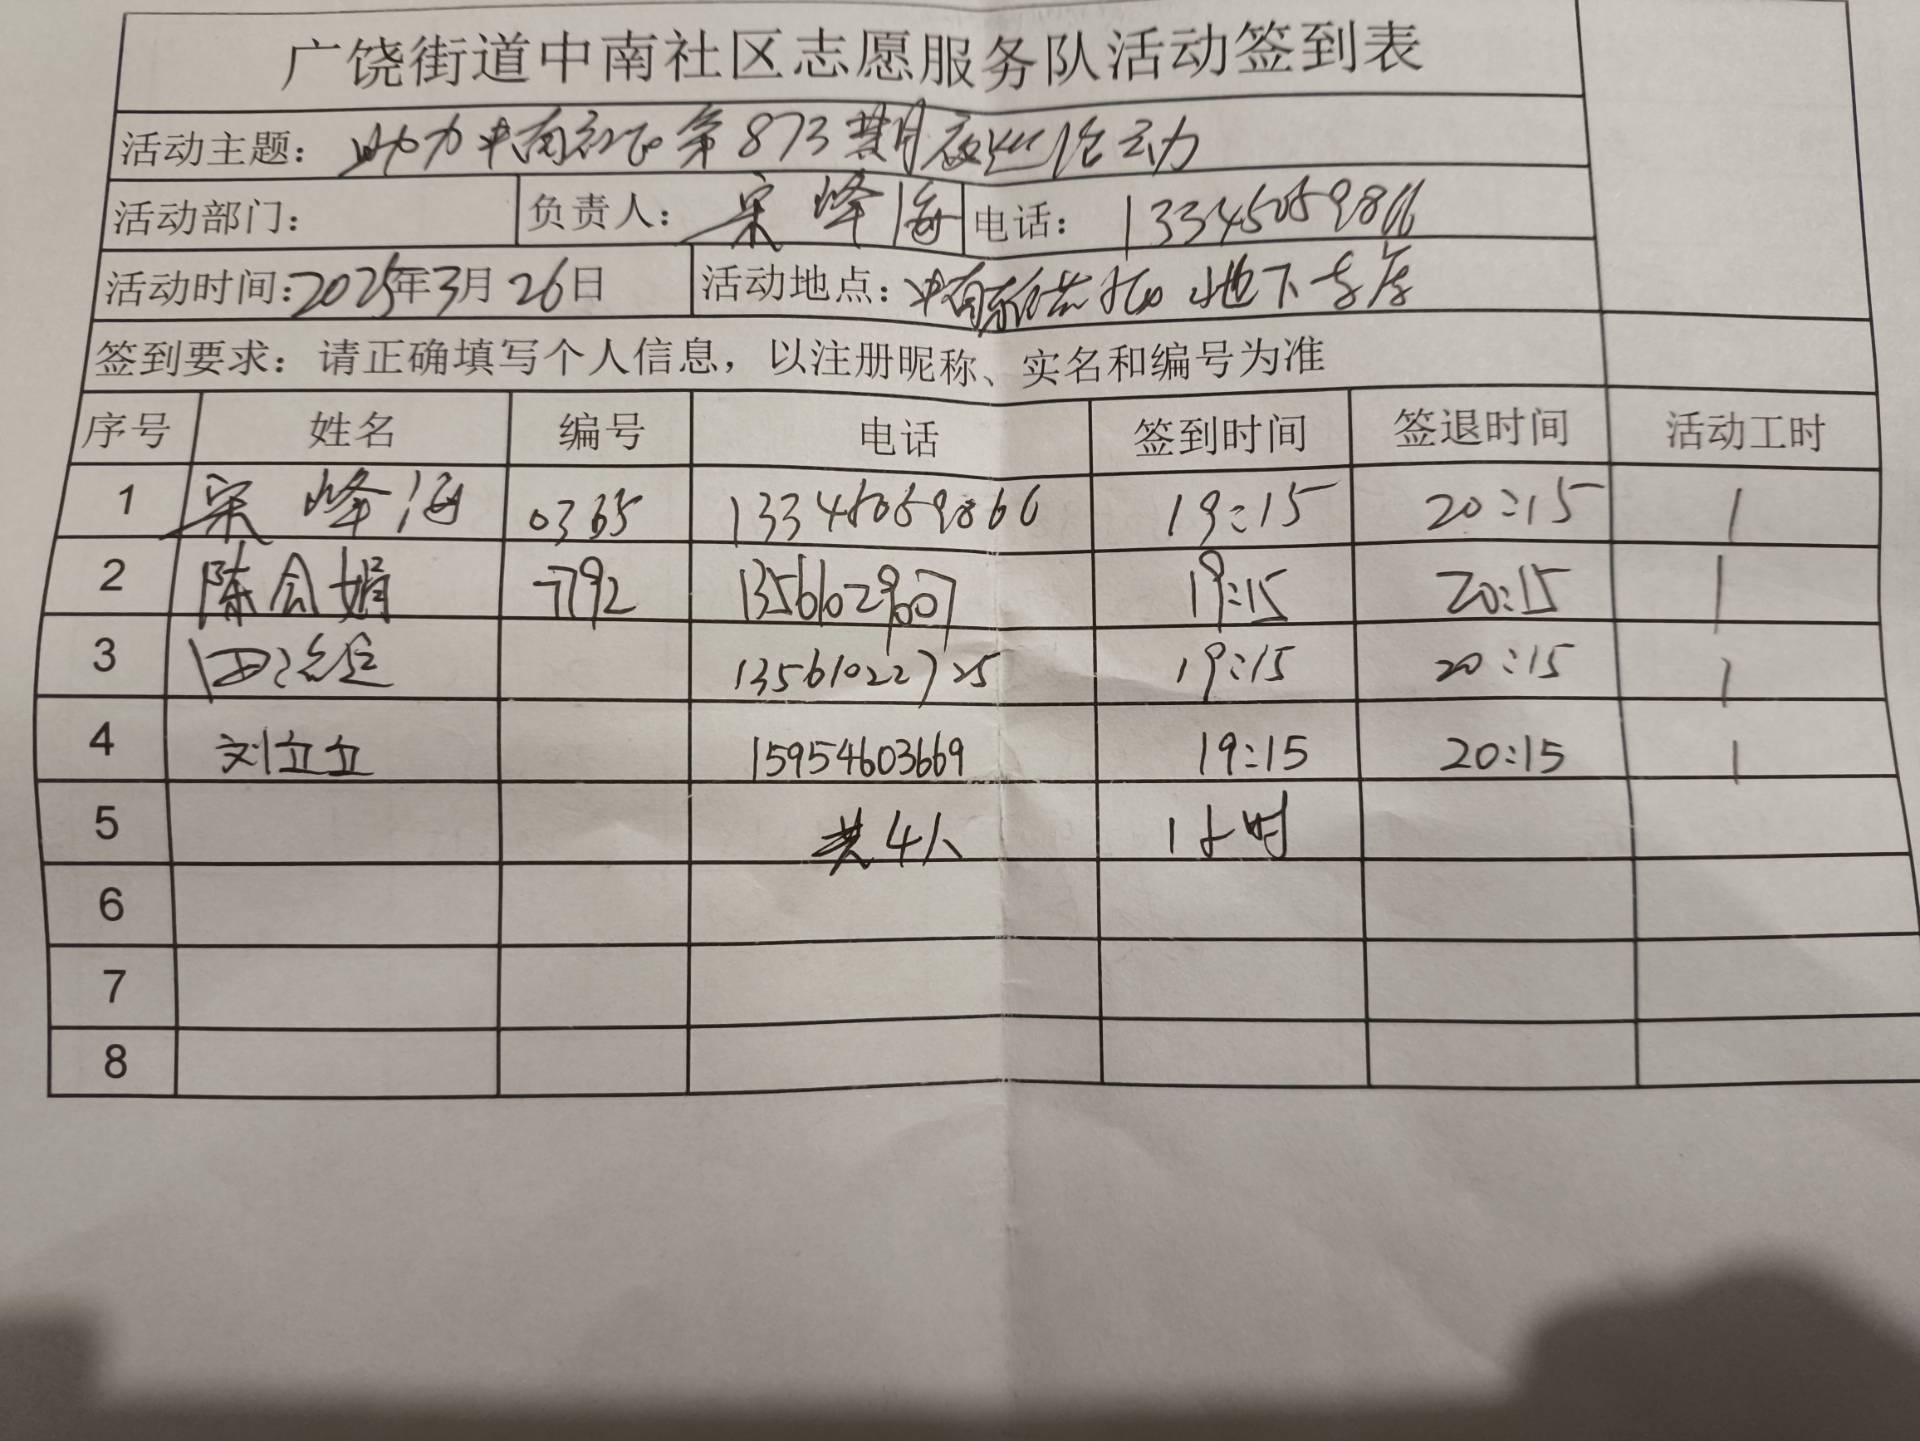 广饶街道中南社区志愿服务队活动签到表
活动主题：助力中南社区第873期夜巡活动
活动部门： 负责人：宋峰海 电话：13345059866
活动时间：2025年3月26日 活动地点：中南 地下车库
签到要求：请正确填写个人信息，以注册昵称、实名和编号为准
序号 姓名 编号 电话 签到时间 签退时间 活动工时
1 宋峰海 0365 13345059866 19:15 20:15 1
2 陈会娟 7792 13561029607 19:15 20:15 1
3 13561022725 19:15 20:15 1
4 刘立立 15954603669 19:15 20:15 1
5 共4人 1小时
6
7
8